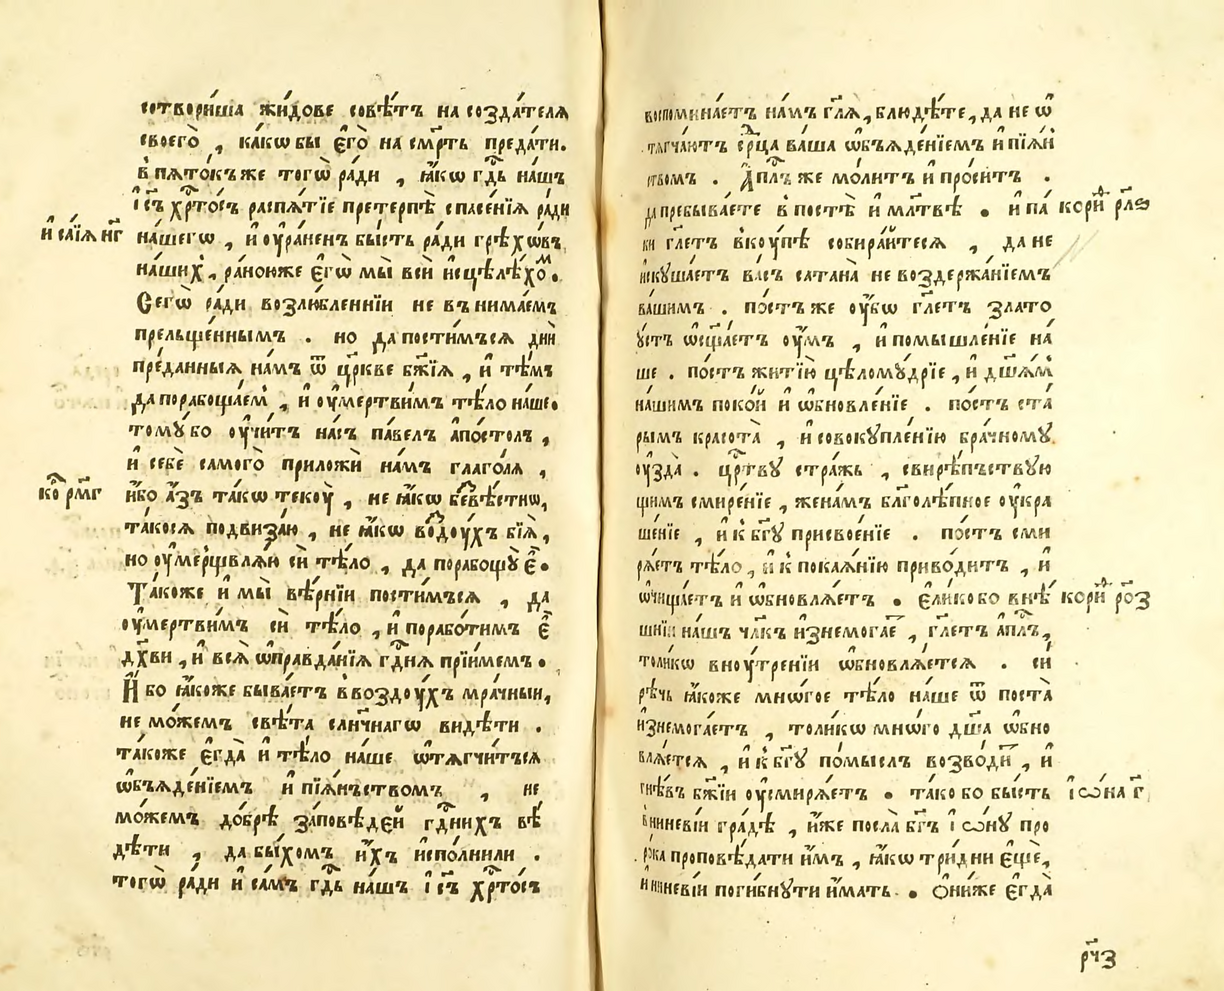 сотвори́ша жи́дове совѣ́тъ на созда́телѧ
своего̀ , ка́кѡ бы є҆го̀ на сме́рть преда́ти.
в пѧто́къ же тогѡ̀ ра́ди , ꙗ҆́кѡ гдⷭ҇ь на́шъ
і҆с҃ъ хрⷭ҇то́съ распѧ́тїе претерпѣ̀ спасе́нїѧ ра́ди
и҆са́їѧ н҃г
на́шегѡ , и҆ ѹ҆ра́ненъ бы́сть ра́ди грѣхѡ́въ
на́шихъ , ра́ною же є҆гѡ̀ мы̀ всѝ и҆сцѣлѣ́хоⷨ .
Сегѡ̀ ра́ди возлю́бленнїи не внима́емъ
прельще́ннымъ . но да пости́мъсѧ дни̑
пре́данныѧ на́мъ ѿ цр҃кве бж҃їѧ , и҆ тѣ́мъ
да порабоща́емъ , и҆ ѹ҆мертви́мъ тѣ́ло на́ше .
томꙋ́ бо ѹ҆чи́тъ на́съ па́велъ а҆по́столъ ,
и҆ себѐ самого̀ приложѝ на́мъ глаго́лѧ ,
коⷬ҇ рм҃г
и҆́бо а҆́зъ та́кѡ текꙋ̀ , не ꙗ҆́кѡ безвѣ́стнѡ ,
та́коѧ подвиза́ю , не ꙗ҆́кѡ воздѹ́хъ бїѧ̀ ,
но ѹ҆мерщвлѧ́ю сѝ тѣ́ло , да порабощꙋ̀ є҆̀ .
Та́коже и҆ мы̀ вѣ́рнїи пости́мъсѧ , да
ѹ҆мертви́мъ сѝ тѣ́ло , и҆ порабо́тимъ є҆̀
дх҃ви , и҆ всѧ̑ ѡ҆правда́нїѧ гдⷭ҇нѧ прїи́мемъ .
И҆́ бо ꙗ҆́коже быва́етъ в воздѹ́хъ мра́чный ,
не мо́жемъ свѣ́та сл҃нчнагѡ ви́дѣти .
та́коже є҆гда̀ и҆ тѣ́ло на́ше ѡ҆тѧгчи́тъсѧ
ѡ҆б̾ѧде́нїемъ и҆ пїѧ́н̾ствомъ , не
мо́жемъ до́брѣ за́повѣдей гдⷭ҇нихъ вѣ́
дѣти , да бы́хомъ и҆́хъ и҆спо́лнили .
тогѡ̀ ра́ди и҆ са́мъ гдⷭ҇ь на́шъ і҆с҃ъ хрⷭ҇то́съ
воспомина́етъ на́мъ гл҃ѧ , блюдѣ́те , да не ѡ҆
тѧгча́ютъ се́рдца ва́ша ѡ҆бъѧде́нїемъ и҆ пїѧ́н
ствомъ . А҆пⷭ҇лъ же мо́литъ и҆ про́ситъ .
да пребыва́ете в постѣ̀ и҆ мл҃твѣ . и҆ па́
кориⷩ҇ѳ рл҃ѕ
ки гл҃етъ вкѹ́пѣ собира́йтесѧ , да не
и҆скꙋша́етъ ва́съ сатана̀ невоздержа́нїемъ
ва́шимъ . по́стъ же ѹ҆́бѡ гл҃етъ злато
ꙋ́стъ ѡ҆сщ҃а́етъ ѹ҆́мъ , и҆ помышле́нїе на́
ше . по́стъ житїю̀ цѣломꙋ́дрїе , и҆ дш҃а́мъ
на́шимъ поко́й и҆ ѡ҆бновле́нїе . по́стъ ста́
рымъ красота̀ , и҆ совокꙋпле́нїю бра́чномꙋ
ѹ҆зда̀ . црⷭ҇твꙋ стра́жь , свирѣ́пъствꙋю
щимъ смире́нїе , жена́мъ благолѣ́пное ѹ҆кра
ше́нїе , и҆ к бг҃ꙋ присвое́нїе . по́стъ сми
рѧ́етъ тѣ́ло , и҆ к покаѧ́нїю приво́дитъ , и҆
ѡ҆чища́етъ и҆ ѡ҆бновлѧ́етъ . є҆ли́ко бо внѣ́
кориⷩ҇ѳ ро҃з
шнїй на́шъ чл҃къ и҆знемога́етъ , гл҃етъ а҆пⷭ҇лъ ,
толи́кѡ внѹ́тренїи ѡ҆бновлѧ́етсѧ . сѝ
рѣ́чь ꙗ҆́коже мнѡ́гое тѣ́ло на́ше ѿ поста̀
и҆знемога́етъ , толи́кѡ мнѡ́го дш҃а ѡ҆бно
влѧ́етсѧ , и҆ к бг҃ꙋ по́мыслъ возво́дитъ , и҆
гнѣ́въ бж҃їи ѹ҆смирѧ́етъ . та́ко бо бы́сть
і҆ѡ́на г҃
в ниневі́и гра́дѣ , и҆́же посла̀ бг҃ъ і҆ѡ́нꙋ про
ро́ка проповѣ́дати и҆̀мъ , ꙗ҆́кѡ три́ дни є҆щѐ ,
и҆ ниневі́и поги́бнꙋти и҆́мать . Ѻ҆ни́же є҆гда̀
рч҃з